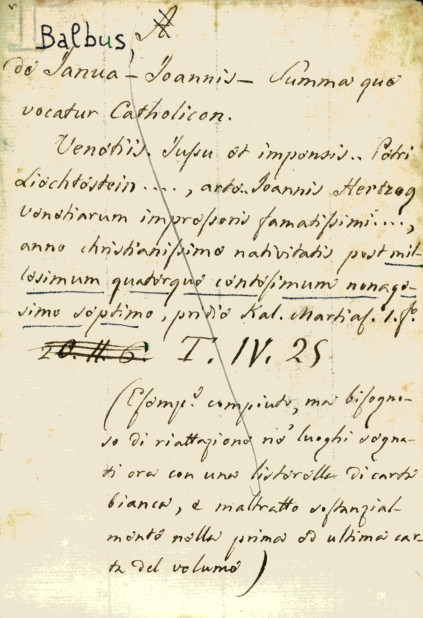 Balbus,
de Janua - Joannis - Summa quæ
vocatur Catholicon.
Venetiis. Jussu et impensis.. Petri
Liechtestein ...., arte. Joannis Hertzog
Venetiarum impressoris famatissimi ....,
anno christianissime nativitatis post mil-
lesimum quaterque centesimum nonage-
simo septimo, pridie Kal. Martias. 1. fo.
20. H. 6. T. IV. 25
(Esemp.e compiuto, ma bisogno-
so di riattazione ne' luoghi segna-
ti ora con una listerella di carta
bianca, e maltratto sostanzial-
mente nella prima ed ultima car-
ta del volume)